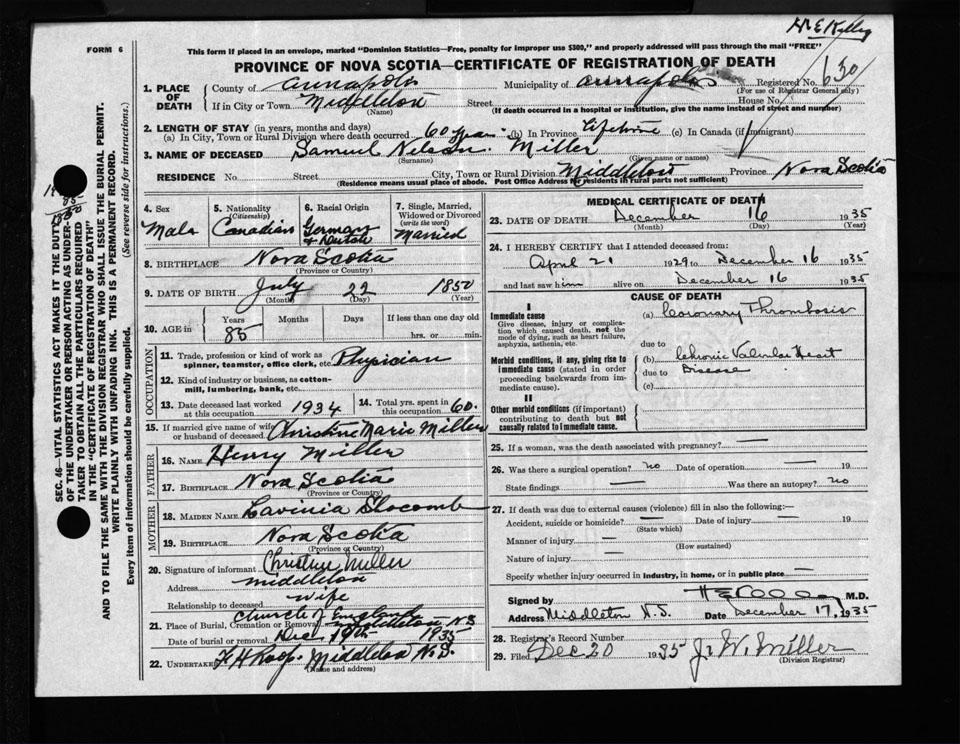 H E Kelley
FORM 6
This form if placed in an envelope, marked "Dominion Statistics—Free, penalty for improper use $300," and properly addressed will pass through the mail "FREE"
PROVINCE OF NOVA SCOTIA—CERTIFICATE OF REGISTRATION OF DEATH
1. PLACE OF DEATH
County of Annapolis Municipality of Annapolis Registered No. 630
(For use of Registrar General only)
If in City or Town Middleton Street House No.
(Name) (If death occurred in a hospital or institution, give the name instead of street and number)
2. LENGTH OF STAY (in years, months and days)
(a) In City, Town or Rural Division where death occurred 60 years (b) In Province Lifetime (c) In Canada (if immigrant)
3. NAME OF DECEASED Samuel Nelson Miller
(Surname) (Given name or names)
RESIDENCE No. Street City, Town or Rural Division Middleton Province Nova Scotia
(Residence means usual place of abode. Post Office Address for residents in rural parts not sufficient)
SEC. 46—VITAL STATISTICS ACT MAKES IT THE DUTY
OF THE UNDERTAKER OR PERSON ACTING AS UNDER-
TAKER TO OBTAIN ALL THE PARTICULARS REQUIRED
IN THE "CERTIFICATE OF REGISTRATION OF DEATH"
AND TO FILE THE SAME WITH THE DIVISION REGISTRAR WHO SHALL ISSUE THE BURIAL PERMIT.
WRITE PLAINLY WITH UNFADING INK. THIS IS A PERMANENT RECORD.
Every item of information should be carefully supplied. (See reverse side for instructions.)
85
1850
4. Sex
Male
5. Nationality
(Citizenship)
Canadian
6. Racial Origin
German
& Dutch
7. Single, Married,
Widowed or Divorced
(write the word)
Married
8. BIRTHPLACE Nova Scotia
(Province or Country)
9. DATE OF BIRTH July 22 1850
(Month) (Day) (Year)
10. AGE in
Years Months Days If less than one day old
85 hrs. or min.
OCCUPATION
11. Trade, profession or kind of work as
spinner, teamster, office clerk, etc. Physician
12. Kind of industry or business, as cotton-
mill, lumbering, bank, etc.
13. Date deceased last worked
at this occupation 1934
14. Total yrs. spent in
this occupation 60.
15. If married give name of wife
or husband of deceased Christine Marie Miller
FATHER
16. Name Henry Miller
17. Birthplace Nova Scotia
(Province or Country)
MOTHER
18. Maiden Name Lavinia Slocomb
19. Birthplace Nova Scotia
(Province or Country)
20. Signature of informant Christine Miller
Address Middleton
Relationship to deceased wife
21. Place of Burial, Cremation or Removal Church of England Middleton, N.S
Date of burial or removal Dec 19th 1935
22. Undertaker F. H Roop Middleton N.S.
(Name and address)
MEDICAL CERTIFICATE OF DEATH
23. DATE OF DEATH December 16 1935
(Month) (Day) (Year)
24. I HEREBY CERTIFY that I attended deceased from:
April 21 1929 to December 16 1935
and last saw him alive on December 16 1935
CAUSE OF DEATH
I
Immediate cause
Give disease, injury or complica-
tion which caused death, not the
mode of dying, such as heart failure,
asphyxia, asthenia, etc.
(a) Coronary Thrombosis
due to
Morbid conditions, if any, giving rise to
immediate cause (stated in order
proceeding backwards from im-
mediate cause).
(b) Chronic Valvular Heart
due to Disease
(c)
II
Other morbid conditions (if important)
contributing to death but not
causally related to immediate cause.
25. If a woman, was the death associated with pregnancy? —
26. Was there a surgical operation? no Date of operation — 19
State findings — Was there an autopsy? no
27. If death was due to external causes (violence) fill in also the following:—
Accident, suicide or homicide? — Date of injury — 19
(State which)
Manner of injury —
(How sustained)
Nature of injury —
Specify whether injury occurred in industry, in home, or in public place —
Signed by M.D.
Address Middleton N.S. Date December 17, 1935
28. Registrar's Record Number
29. Filed Dec 20 1935 J. W. Miller
(Division Registrar)